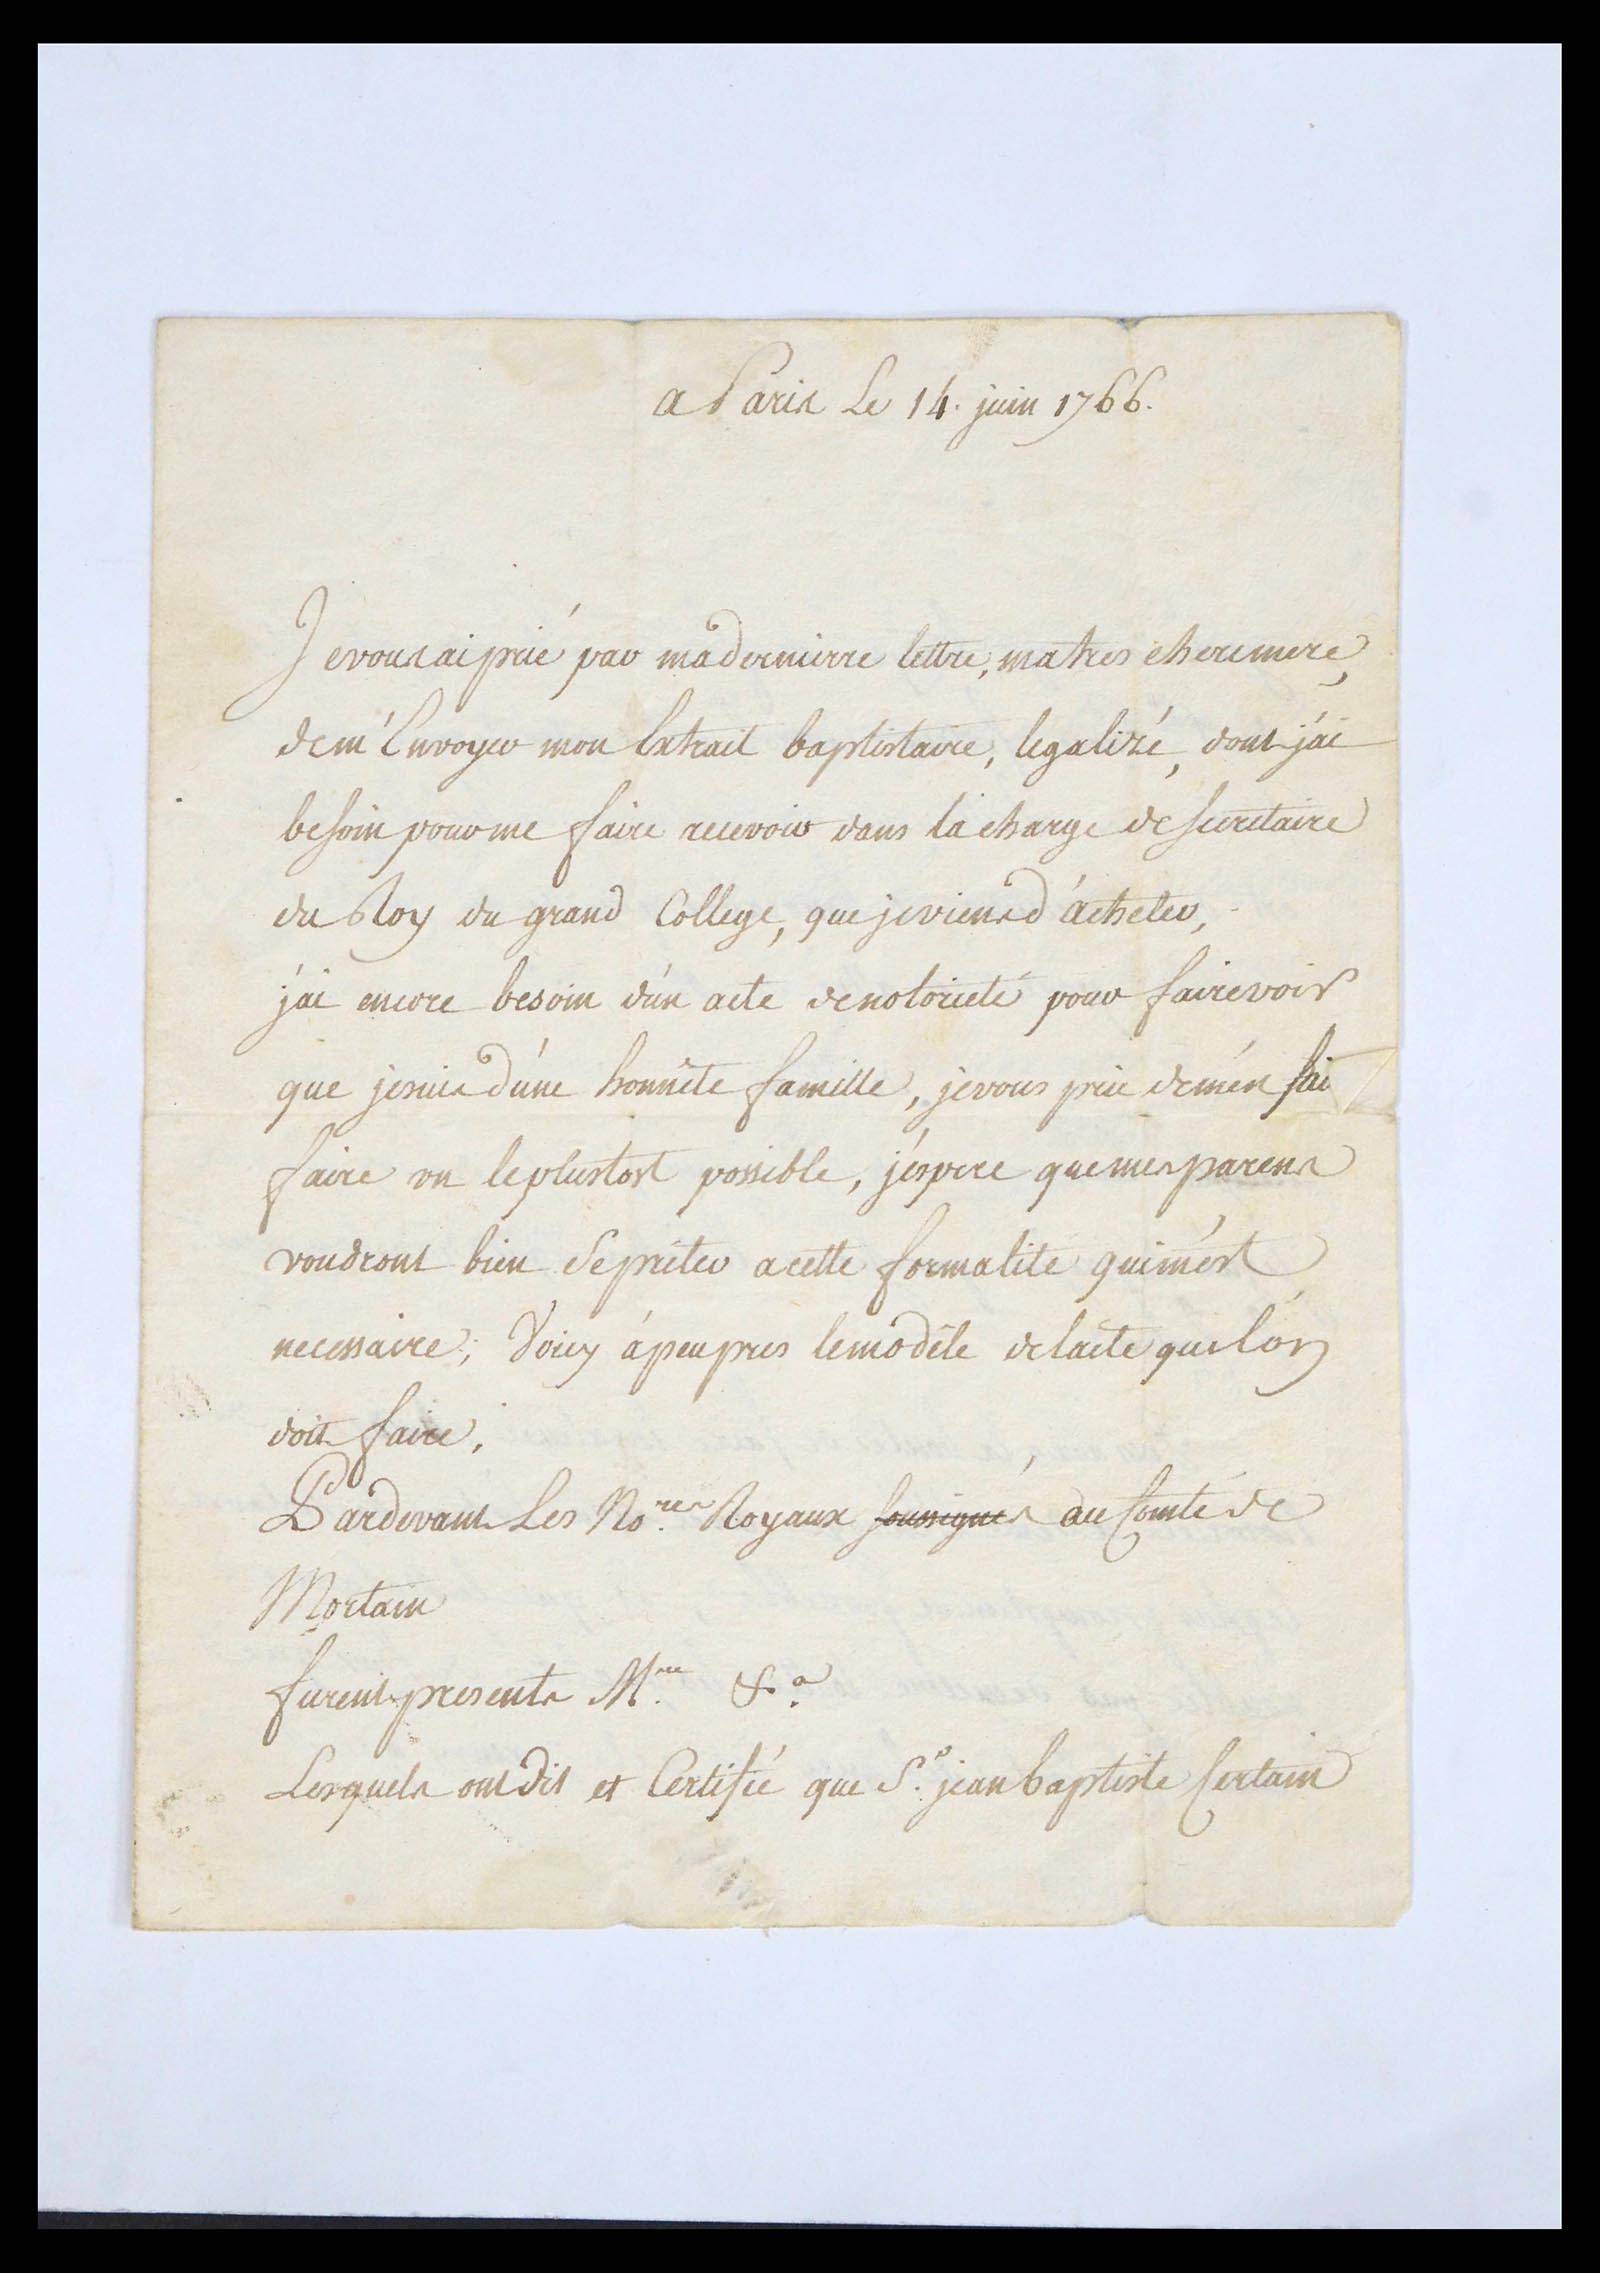 a Paris Le 14. juin 1766.
Je vous ai prié par ma dernierre lettre, ma tres chere mere,
de m'Envoyer mon Extrait baptistaire, legalizé, dont j'ai
besoin pour me faire recevoir dans la charge de secretaire
du Roy du grand College, que je viens d'acheter,
j'ai encore besoin d'un acte de notorieté pour faire voir
que je suis d'une honnête famille, je vous prie de m'en fai
faire un le plustost possible, j'espere que mes parens
voudront bien se prêter a cette formalité qui m'est
necessaire; Voicy á peu pres le modèle de l'acte que l'on
doit faire,
Pardevant Les No.res Royaux soussignés au Comté de
Mortain
furent presents M.rs &.a
Lesquels ont dit et Certifié que S.r jean baptiste Certain